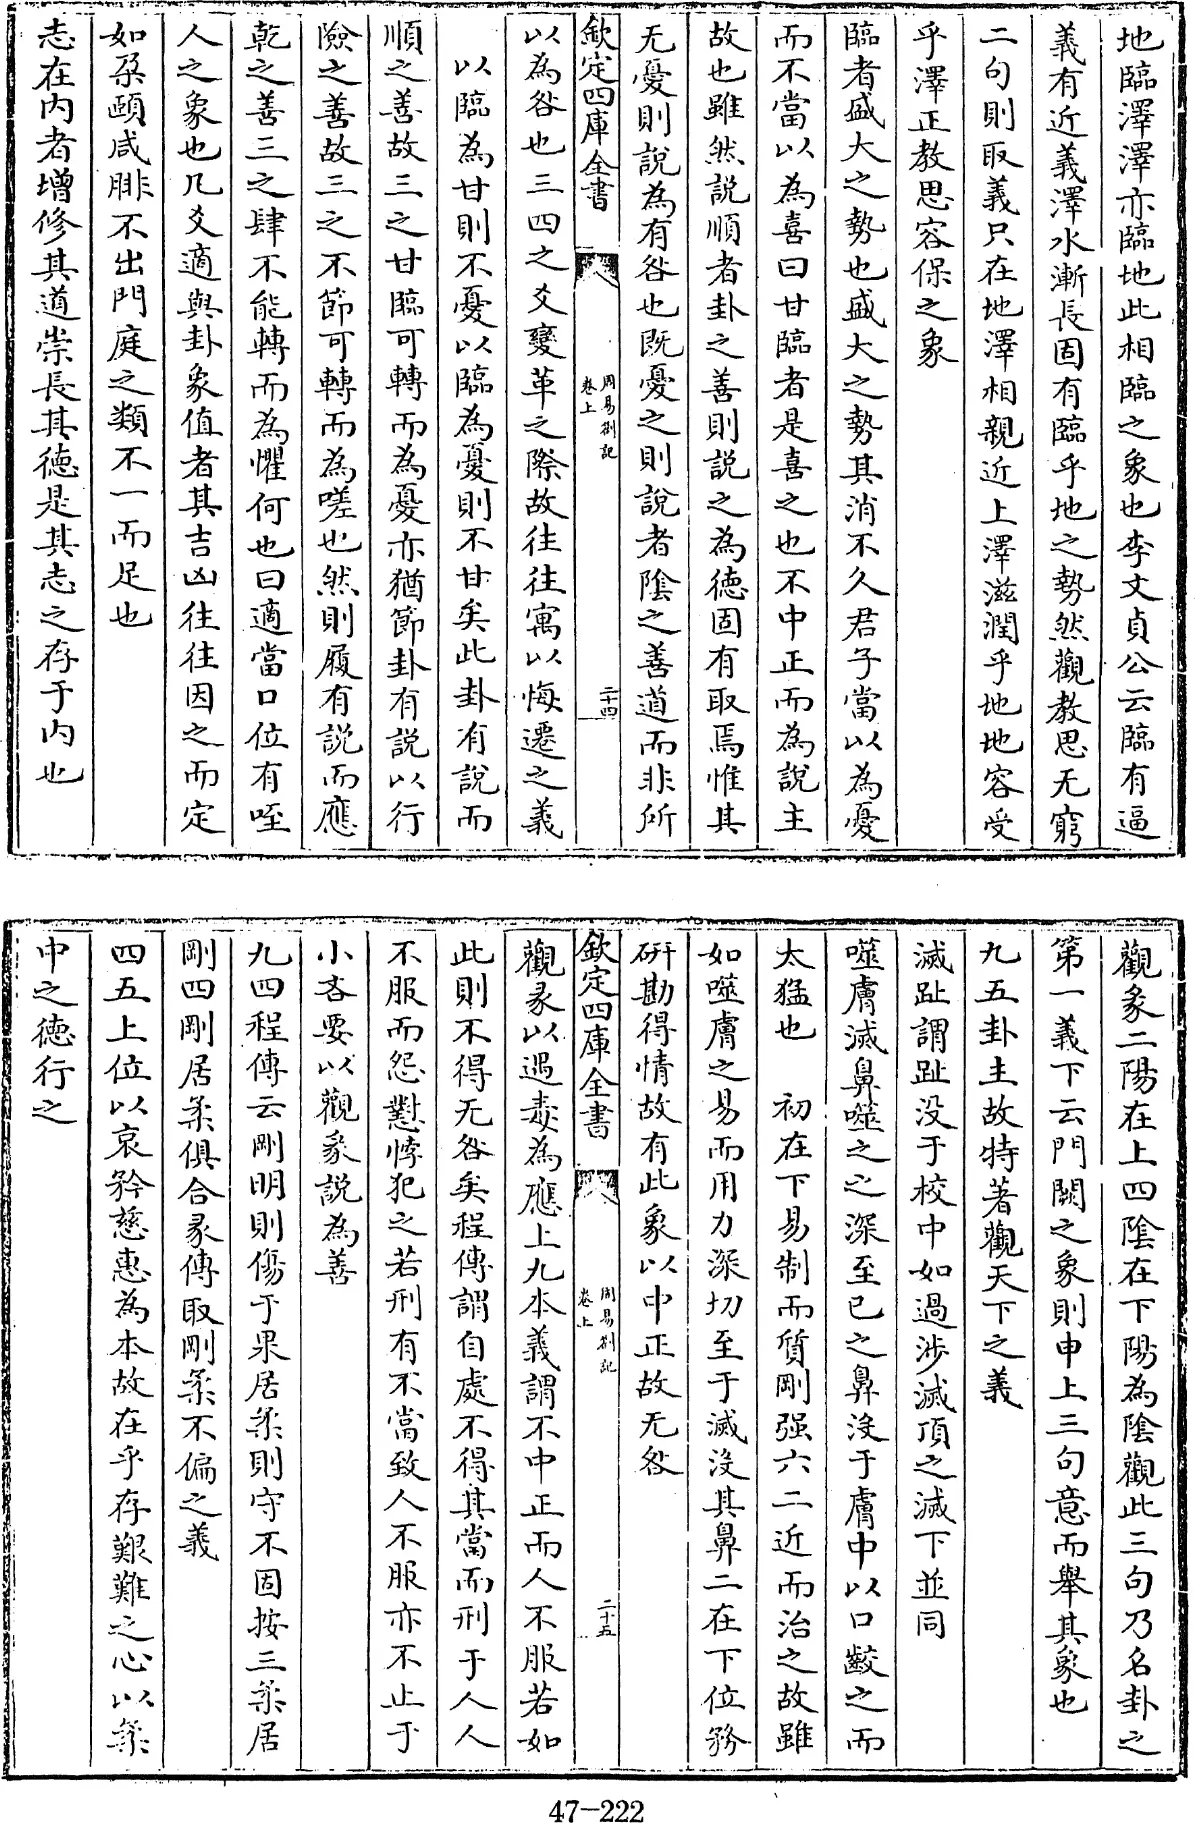 地臨澤澤亦臨地此相臨之象也李文貞公云臨有逼
義有近義澤水漸長固有臨乎地之勢然觀教思无窮
二句則取義只在地澤相親近上澤滋潤乎地地容受
乎澤正教思容保之象
臨者盛大之勢也盛大之勢其消不久君子當以為憂
而不當以為喜曰甘臨者是喜之也不中正而為說主
故也雖然説順者卦之善則説之為德固有取焉惟其
无憂則説為有咎也既憂之則說者陰之善道而非所
欽定四庫全書
周易劄記
卷上
二十四
以為咎也三四之爻變革之際故往往寓以悔遷之義
以臨為甘則不憂以臨為憂則不甘矣此卦有說而
順之善故三之甘臨可轉而為憂亦猶節卦有説以行
險之善故三之不節可轉而為嗟也然則履有説而應
乾之善三之肆不能轉而為懼何也曰適當口位有咥
人之象也凡爻適與卦象值者其吉凶往往因之而定
如朶頤咸腓不出門庭之類不一而足也
志在内者增修其道崇長其德是其志之存于内也
觀彖二陽在上四陰在下陽為陰觀此三句乃名卦之
第一義下云門闕之象則申上三句意而舉其象也
九五卦主故特著觀天下之義
滅趾謂趾没于校中如過涉滅頂之滅下並同
噬膚滅鼻噬之之深至已之鼻没于膚中以口齩之而
太猛也　初在下易制而質剛强六二近而治之故雖
如噬膚之易而用力深切至于滅没其鼻二在下位務
研勘得情故有此象以中正故无咎
欽定四庫全書
周易劄記
卷上
二十五
觀彖以遇毒為應上九本義謂不中正而人不服若如
此則不得无咎矣程傳謂自處不得其當而刑于人人
不服而怨懟悖犯之若刑有不當致人不服亦不止于
小吝要以觀彖説為善
九四程傳云剛明則傷于果居柔則守不固按三柔居
剛四剛居柔俱合彖傳取剛柔不偏之義
四五上位以哀矜慈惠為本故在乎存艱難之心以柔
中之德行之
47-222